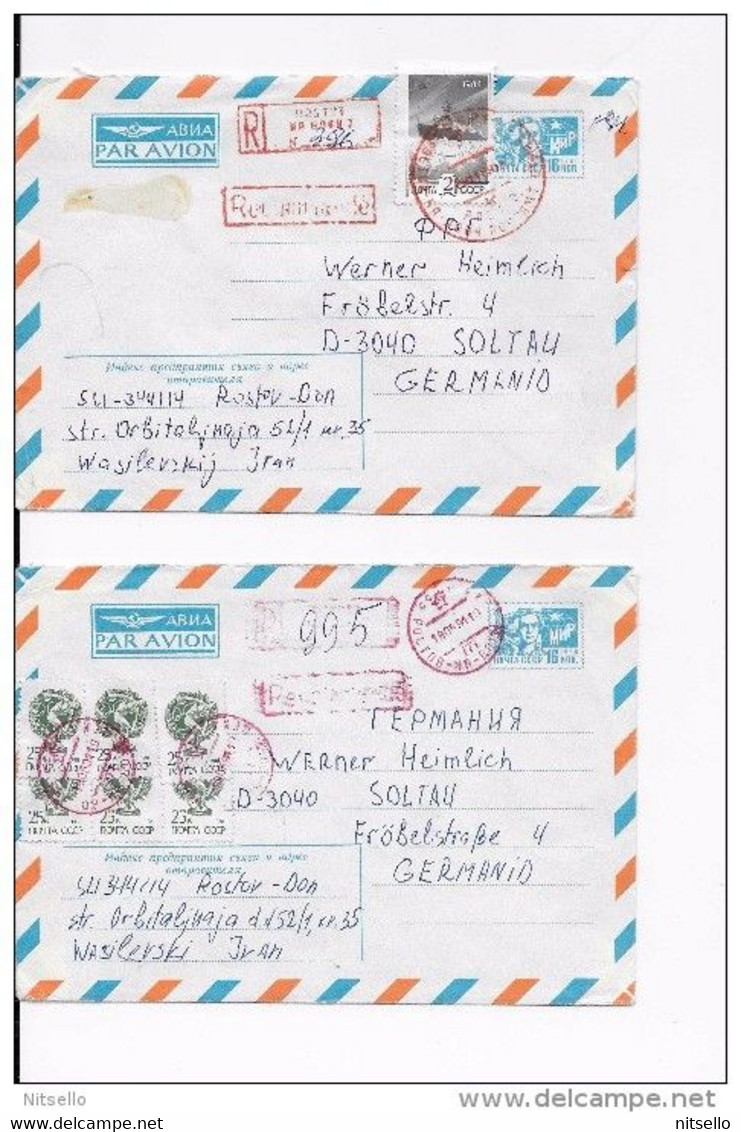 АВИА
PAR AVION
R
296
МИР
ПОЧТА СССР 16 КОП.
ПОЧТА СССР
ФРГ
Werner Heimlich
Fröbelstr. 4
D-3040 SOLTAU
GERMANIO
Индекс предприятия связи и адрес
отправителя
SU-344114 Rostov-Don
str. Orbitaljnaja 52/1 kv. 35
Wasilevskij Ivan
АВИА
PAR AVION
R
995
МИР
ПОЧТА СССР 16 КОП.
25к
ПОЧТА СССР
ПОЧТА СССР
ПОЧТА СССР
ГЕРМАНИЯ
WERNER Heimlich
D-3040 SOLTAU
Fröbelstraße 4
GERMANIO
Индекс предприятия связи и адрес
отправителя
SU344114 Rostov-Don
str. Orbitaljnaja d 52/1, kv. 35
Wasilevski Ivan
www.delcampe.net
Nitsello
nitsello